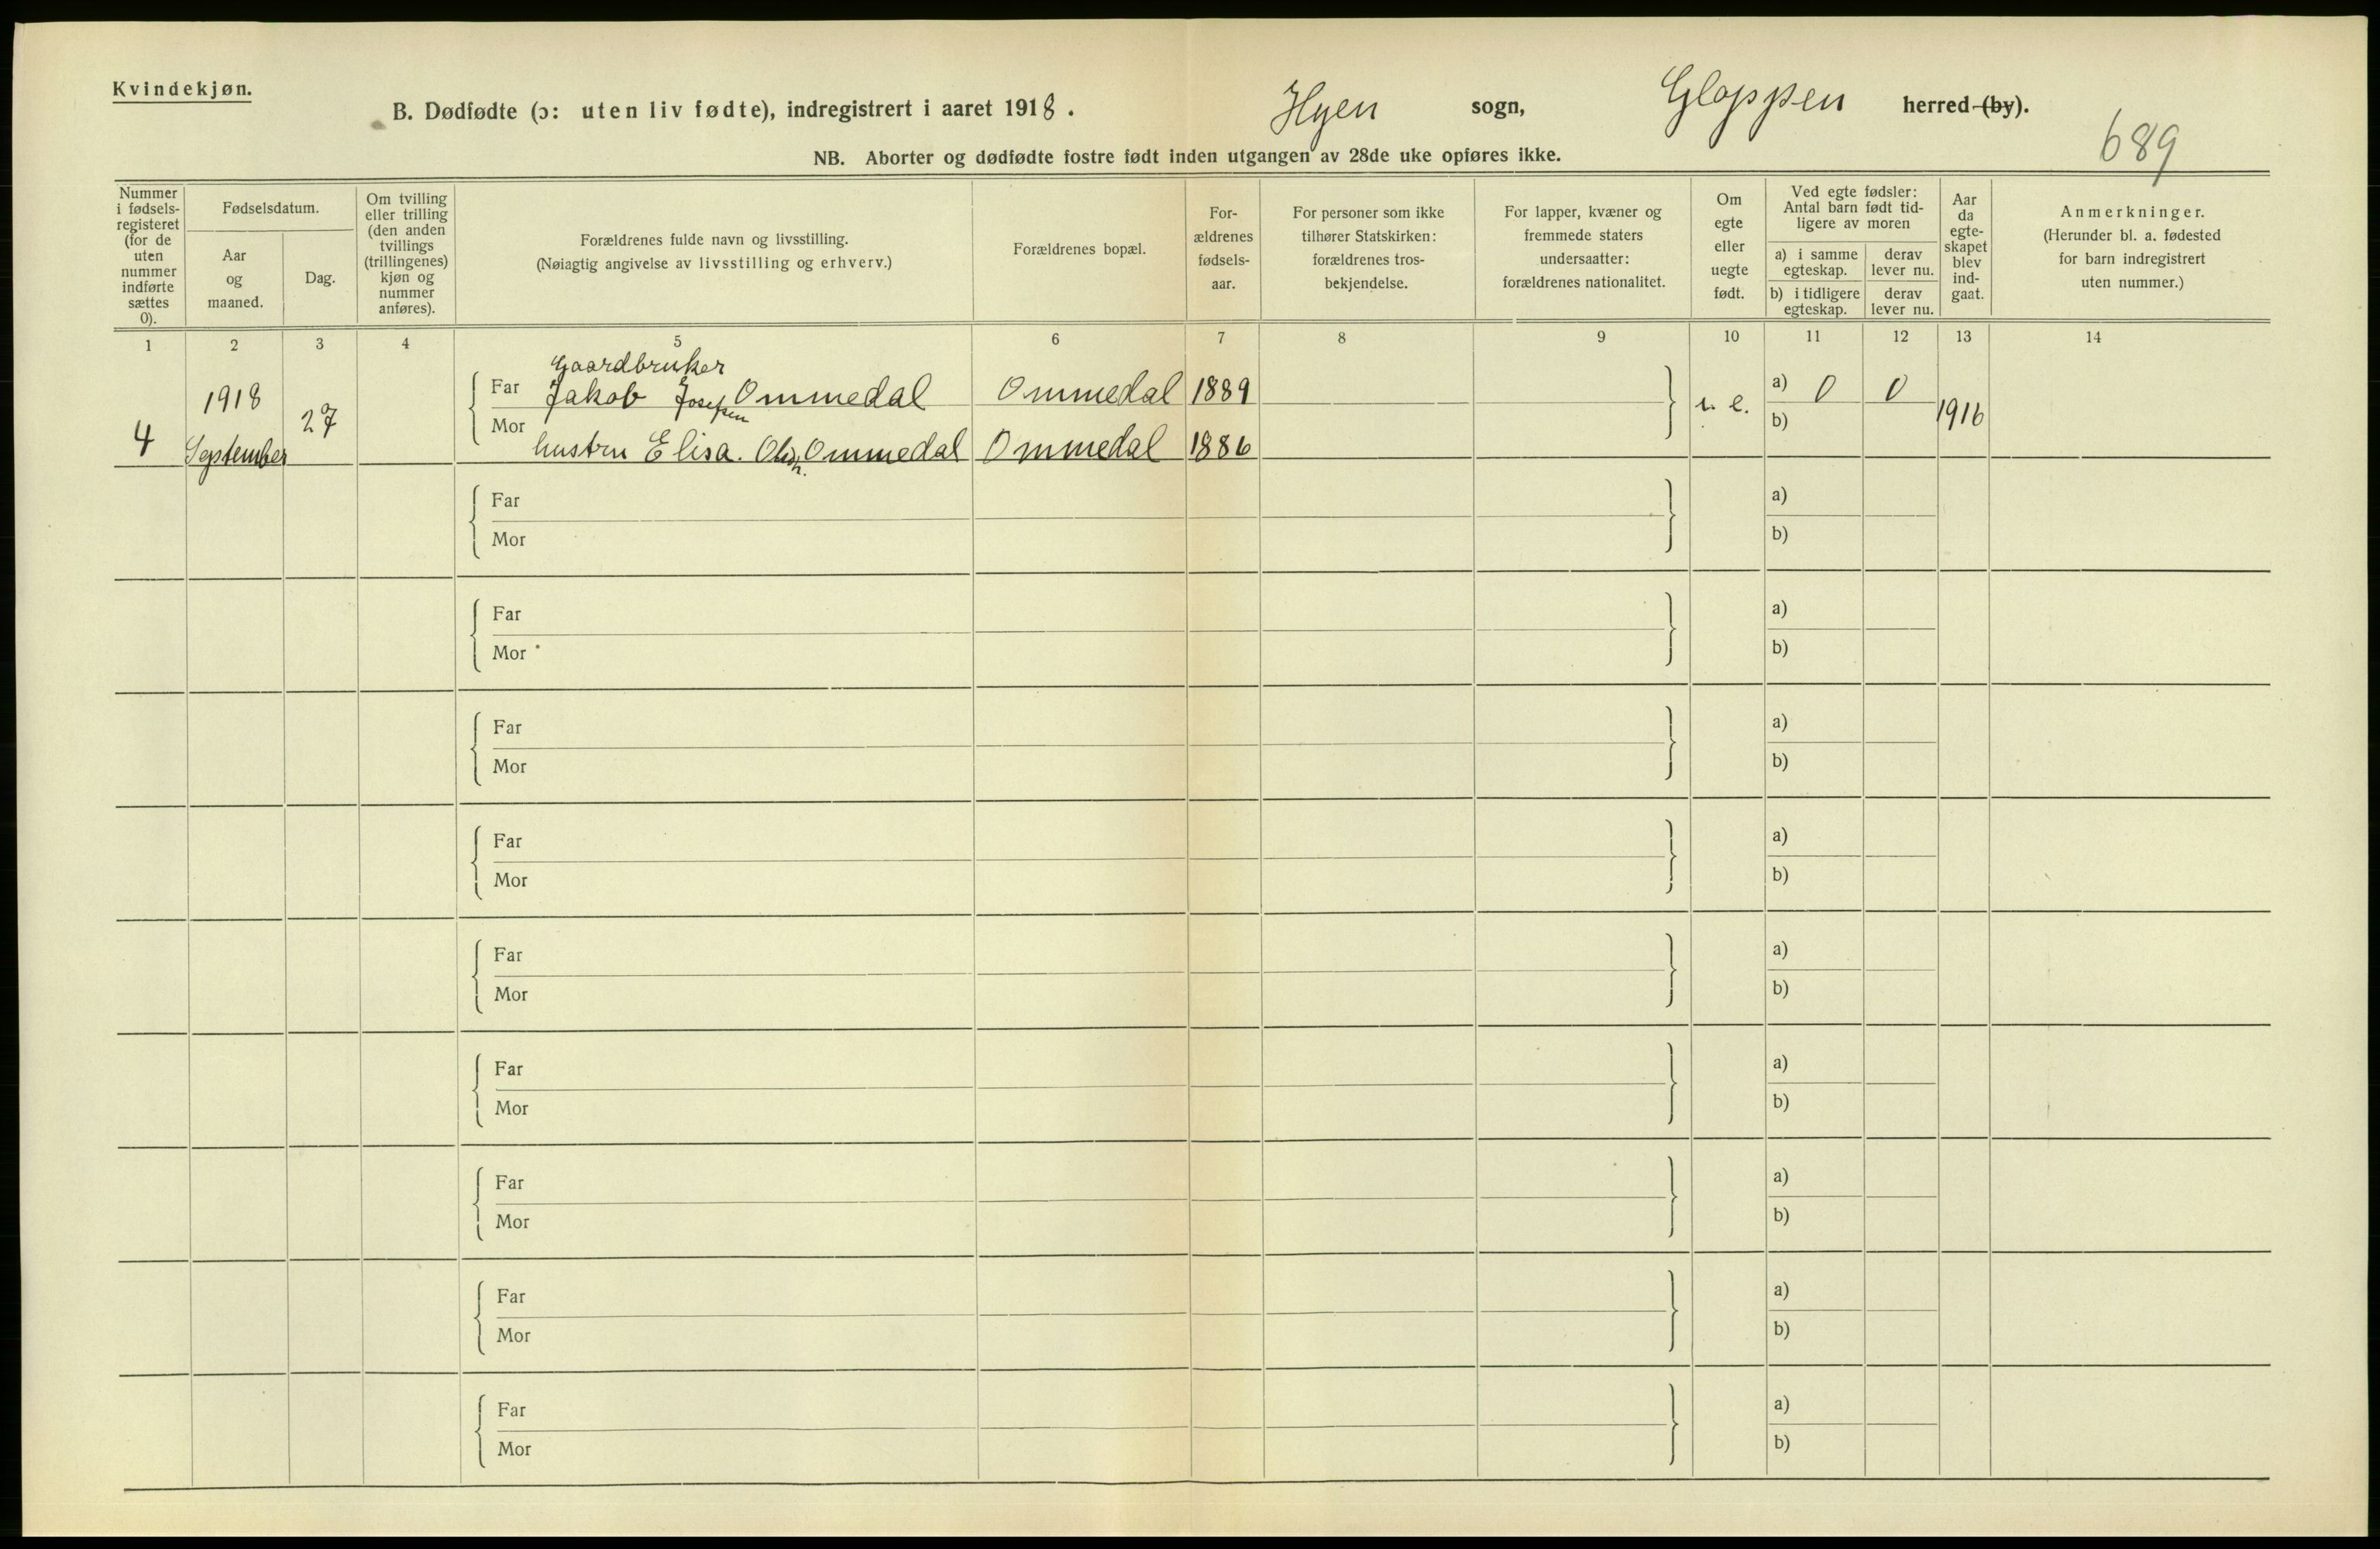 Kvindekjøn.
B. Dødfødte (ɔ: uten liv fødte), indregistrert i aaret 1918. Hyen sogn, Gloppen herred (by).
689
NB. Aborter og dødfødte fostre født inden utgangen av 28de uke opføres ikke.
Nummer i fødsels-registeret (for de uten nummer indførte sættes 0).
Fødselsdatum.
Aar og maaned.
Dag.
Om tvilling eller trilling (den anden tvillings (trillingenes) kjøn og nummer anføres).
Forældrenes fulde navn og livsstilling.
(Nøiagtig angivelse av livsstilling og erhverv.)
Forældrenes bopæl.
For-ældrenes fødsels-aar.
For personer som ikke tilhører Statskirken: forældrenes tros-bekjendelse.
For lapper, kvæner og fremmede staters undersaatter: forældrenes nationalitet.
Om egte eller uegte født.
Ved egte fødsler: Antal barn født tid-ligere av moren
a) i samme egteskap.
derav lever nu.
b) i tidligere egteskap.
derav lever nu.
Aar da egte-skapet blev ind-gaat.
Anmerkninger.
(Herunder bl. a. fødested for barn indregistrert uten nummer.)
1 2 3 4 5 6 7 8 9 10 11 12 13 14
Gaardbruker
4 1918 September 27 Far Jakob Josefsen Ommedal Ommedal 1889 e. a) 0 0 1916
Mor hustru Elisa Ommedal Ommedal 1886 b)
Far a)
Mor b)
Far a)
Mor b)
Far a)
Mor b)
Far a)
Mor b)
Far a)
Mor b)
Far a)
Mor b)
Far a)
Mor b)
Far a)
Mor b)
Far a)
Mor b)